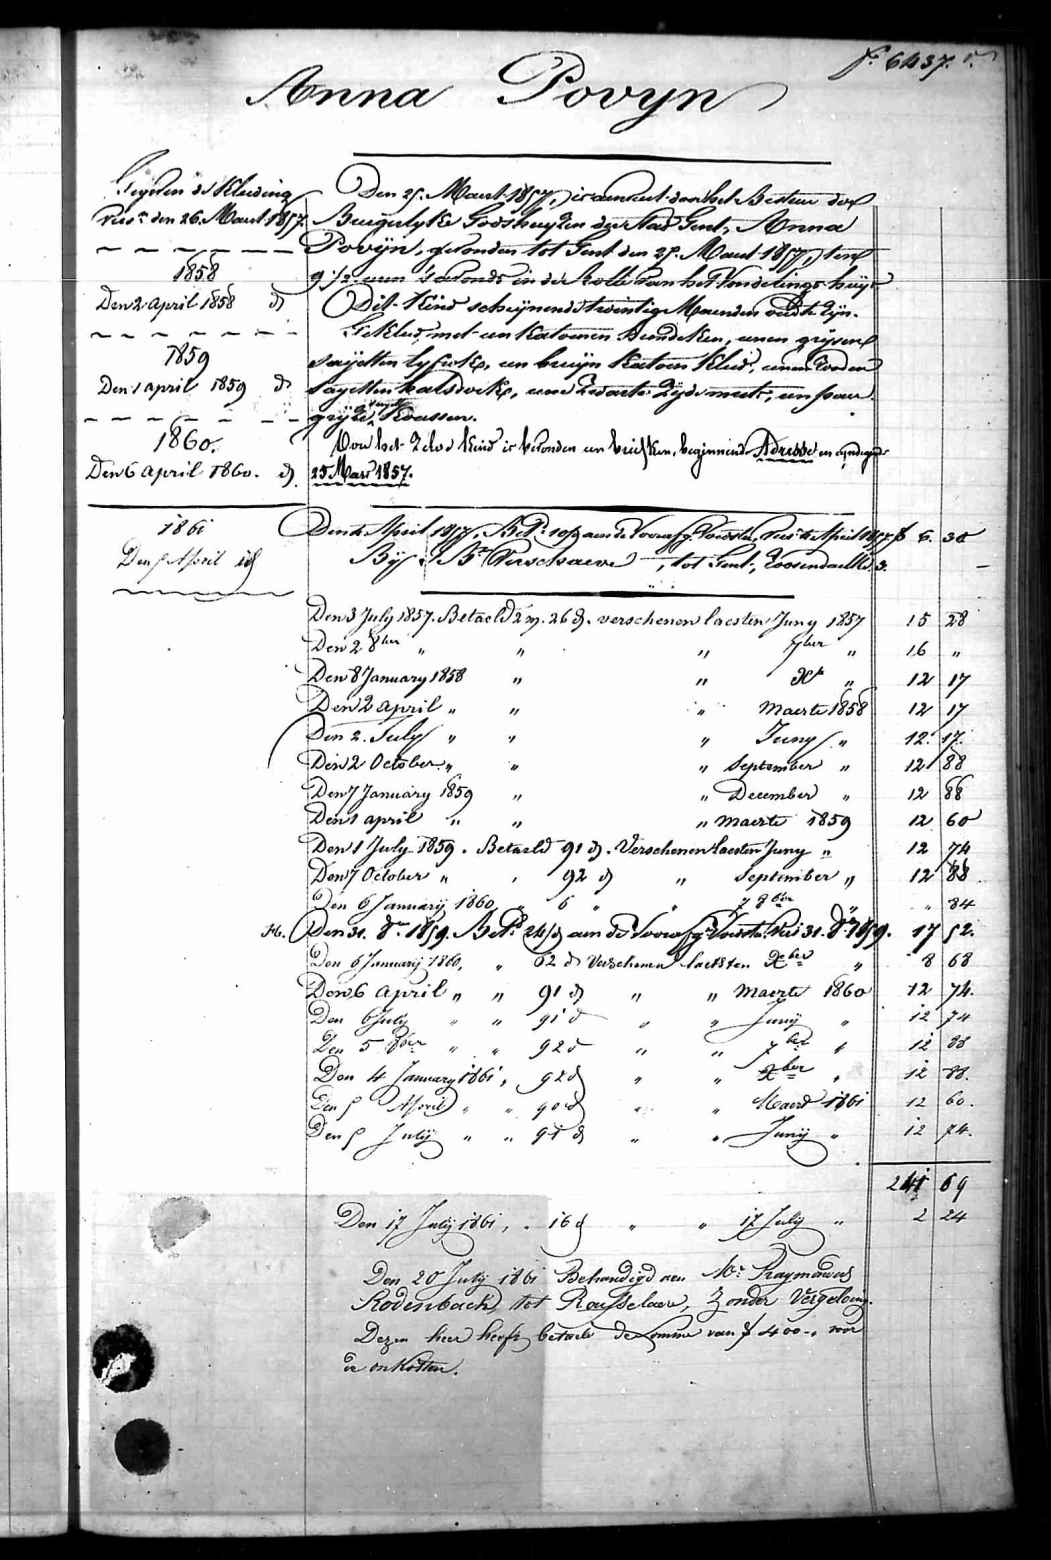 f° 6437.
Anna Povyn
Kleeding
den 26. Maert 1857.
1858
Den 2 april 1858 d
1859
Den 1 april 1859 d
1860.
Den 6 april 1860. d.
1861
Den 5 April id
Den 25. Maert 1857, is aenveert door het Bestuer der
Burgerlyke Godshuyzen der Stad Gent, Anna
Povÿn, gevonden tot Gent den 25. Maert 1857, ten
9 1/2 uren 's avonds in de Rolle van het Vondelings huys
Dit Kind schynende twintig Maenden oud te zyn.
Gekleed met een Katoenen hemdeken, eenen grysen
sayetten lyfrok, een bruyn Katoen Kleed, eenen rooden
sayetten halsdoek, eene zwarte zyde muts, een paer
gryze Koussen.
Van het zelve Kind is gevonden een briefken, beginnende Adresse en eyndigende
25 Mars 1857.
Den 4 April 1857, Bet. aen de Voorafg. Voedster, April 1857 f 6. 30
By B. Verschaeve, tot Gent, Roosendaelk. 3.
Den 3 July 1857. Betaeld 2 m. 26 d. verschenen laesten Juny 1857 15 28
Den 2 8ber " " " 7ber " 16 "
Den 8 January 1858 " " Xb " 12 17
Den 2 april " " " Maerte 1858 12 17
Den 2. July " " " Juny " 12. 17.
Den 2 October " " " September " 12 88
Den 7 January 1859 " " December " 12 88
Den 1 april " " " Maerte 1859 12 60
Den 1 July 1859. Betaeld 91 d. Verschenen laesten Juny " 12 74
Den 7 October " " 92 d " September " 12 88
Den 6 Januarij 1860 " 6 " " 7 8ber " " 84
H. Den 31. 8r 1859. Bet. 24/d aen de Voorafg. Voedst. 31. 8r 1859. 17 52.
Den 6 Januarij 1860, " 62 d Verschenen laetsten Xber " 8 68
Den 6 April " " 91 d " " Maerte 1860 12 74.
Den 6 July " " 91 d " " Junij " 12 74
Den 5 8ber " " 92 d " " 7ber " 12 88
Den 4 January 1861, 92 d " " Xber " 12 88.
Den 5 April " " 90 d " " Maert 1861 12 60.
Den 5 Julij " " 91 d " " Junij " 12 74.
241 69
Den 17 Julij 1861, " 16 d " " 17 July " 2 24
Den 20 July 1861 Behandigd aen Mr Praymondus
Rodenbach, tot Rousselaere, zonder Vergelding.
Dezen heer heeft betaeld de somme van f 400-, voor
de onkosten.